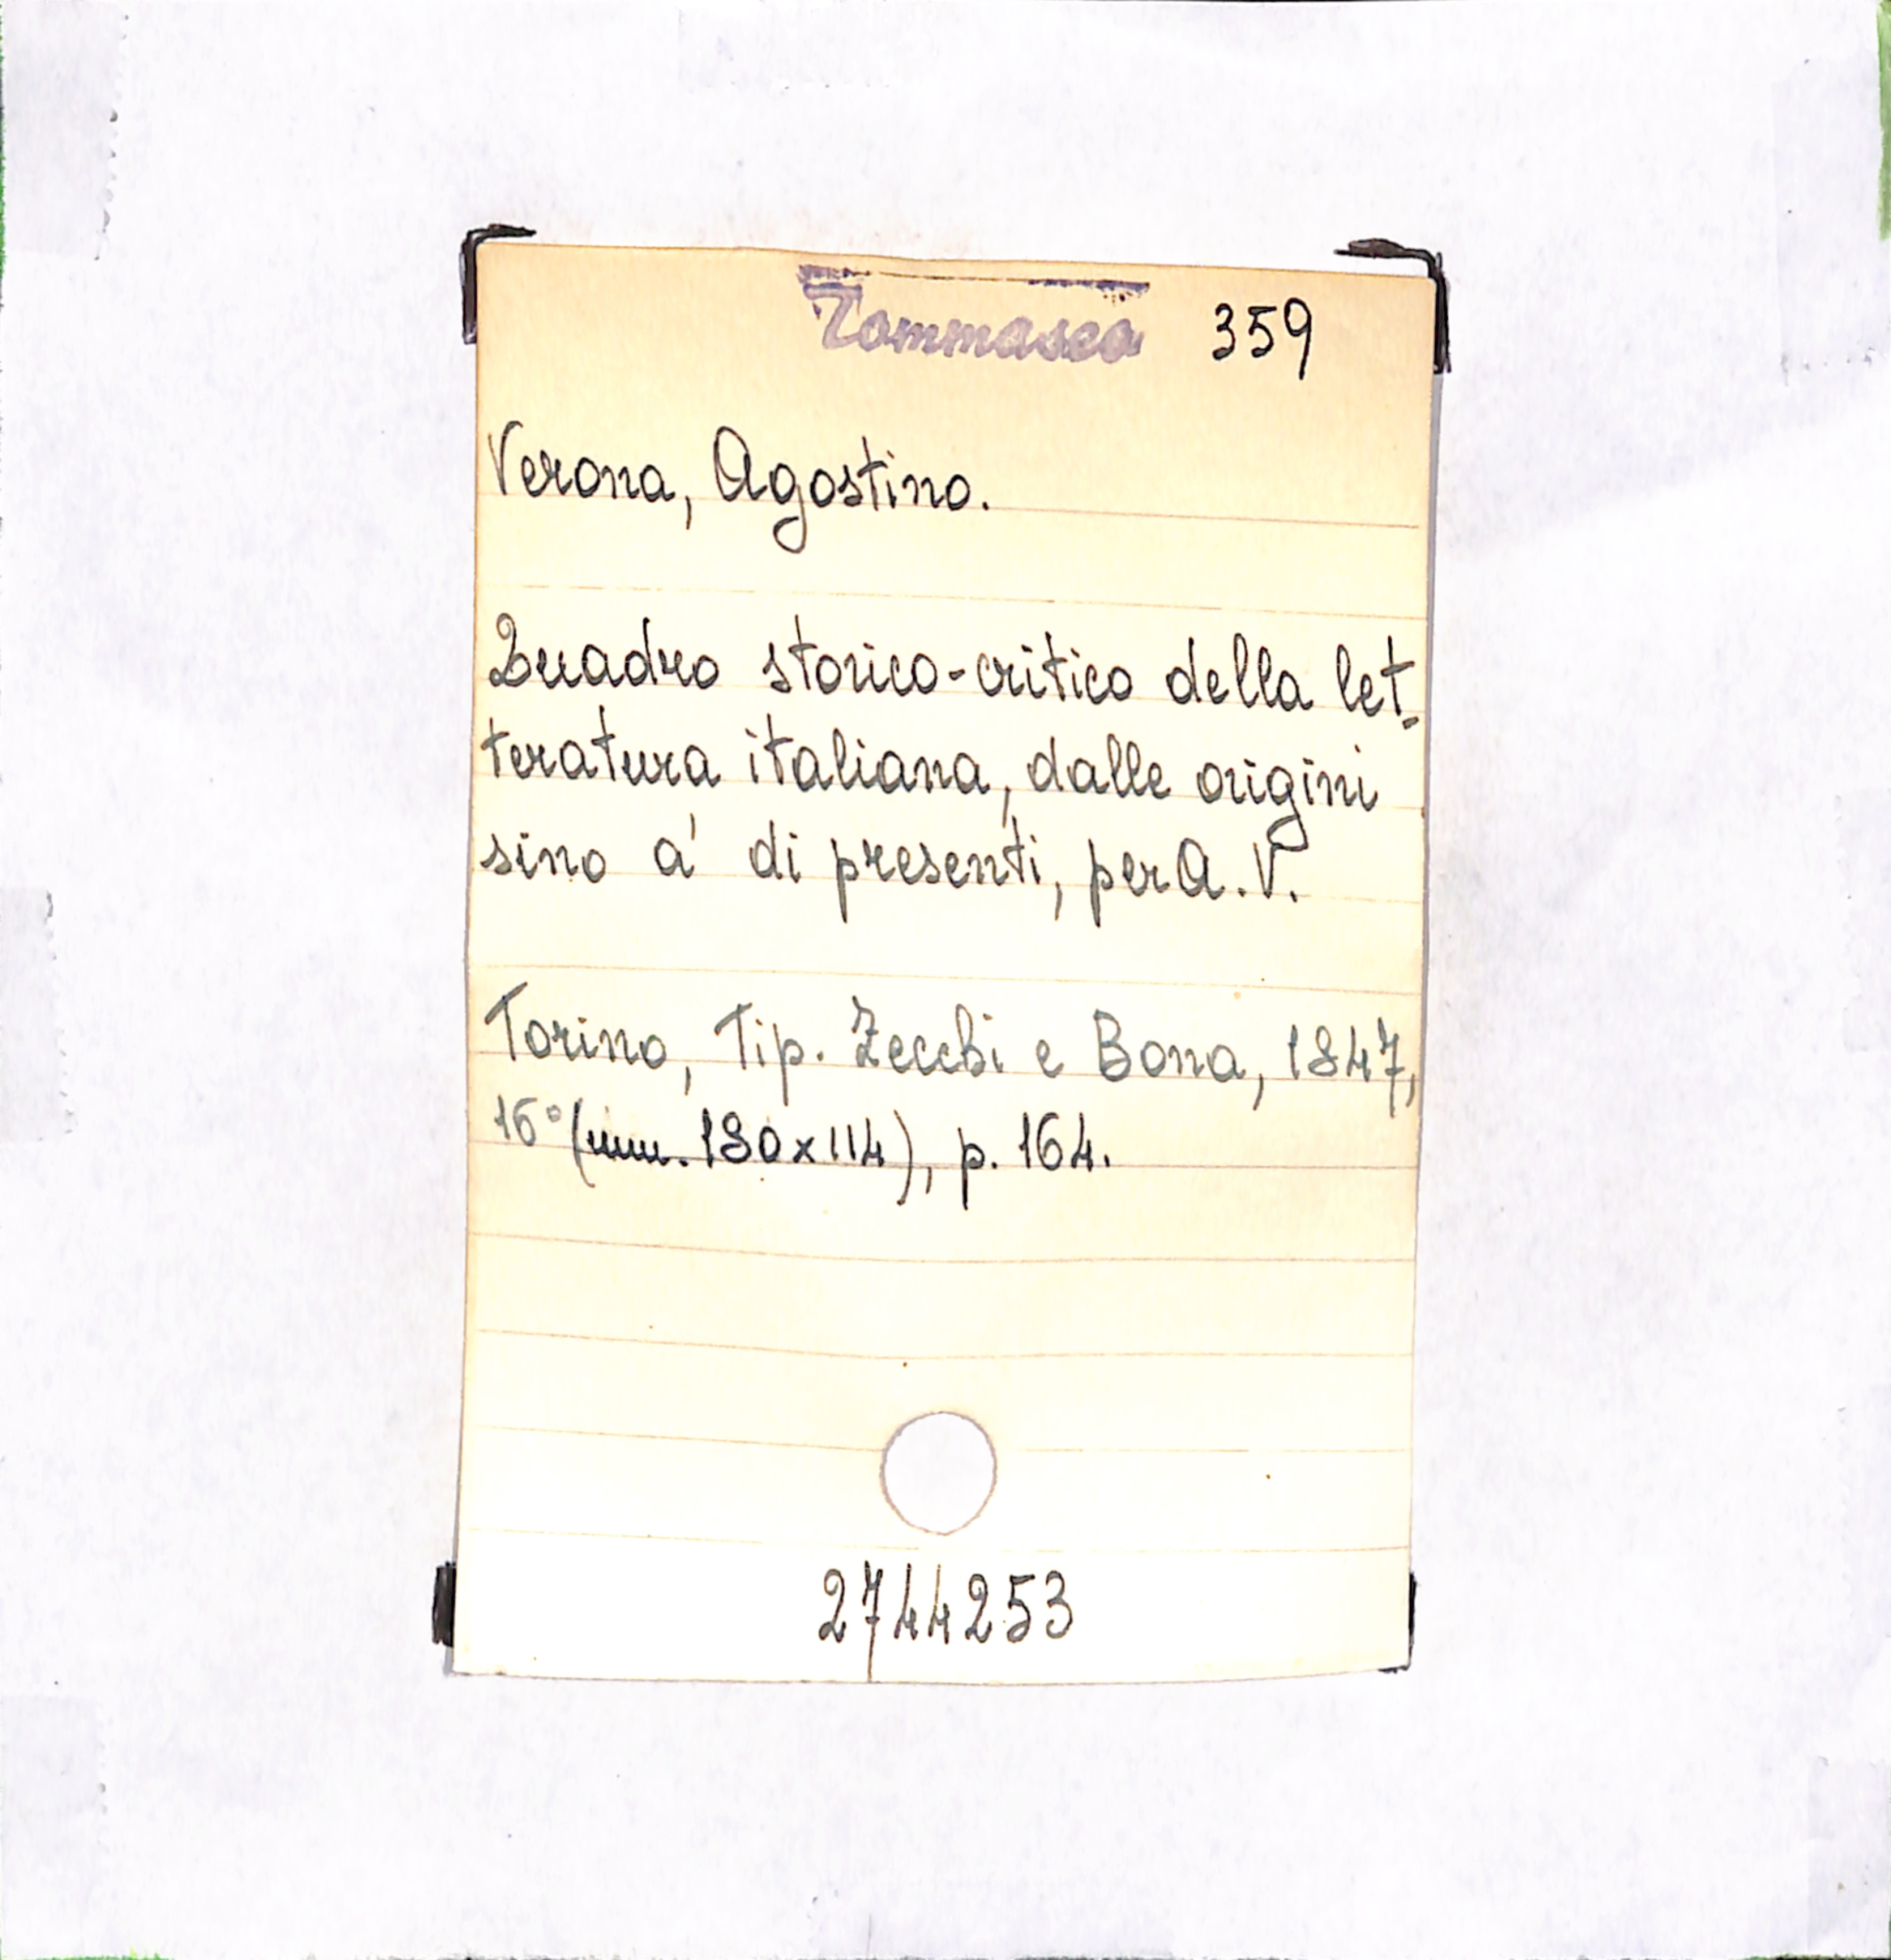 Tommaseo 359
Verona, Agostino.
Quadro storico-critico della let-
teratura italiana, dalle origini
sino a' di presenti, per A. V.
Torino, Tip. Zecchi e Bona, 1847,
16° (mm. 180x114), p. 164.
2744253